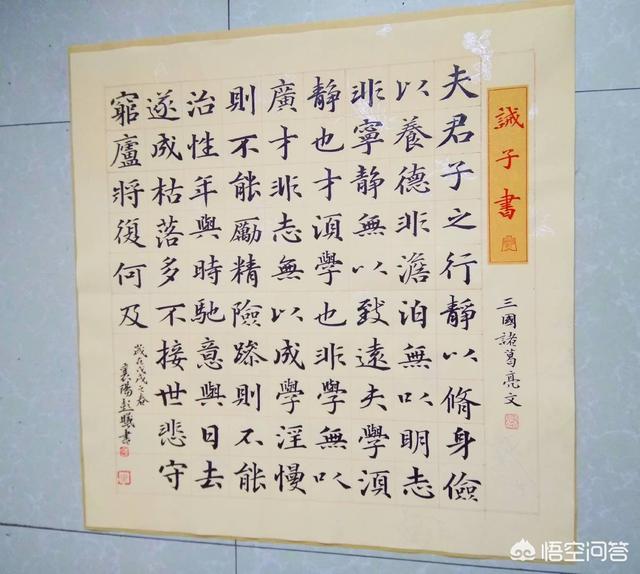 誡子書
三國諸葛亮文
夫君子之行靜以脩身儉
以養德非澹泊無以明志
非寧靜無以致遠夫學須
靜也才須學也非學無以
廣才非志無以成學淫慢
則不能勵精險躁則不能
治性年與時馳意與日去
遂成枯落多不接世悲守
窮廬將復何及
歲在戊戌之春
襄陽彭書
悟空问答